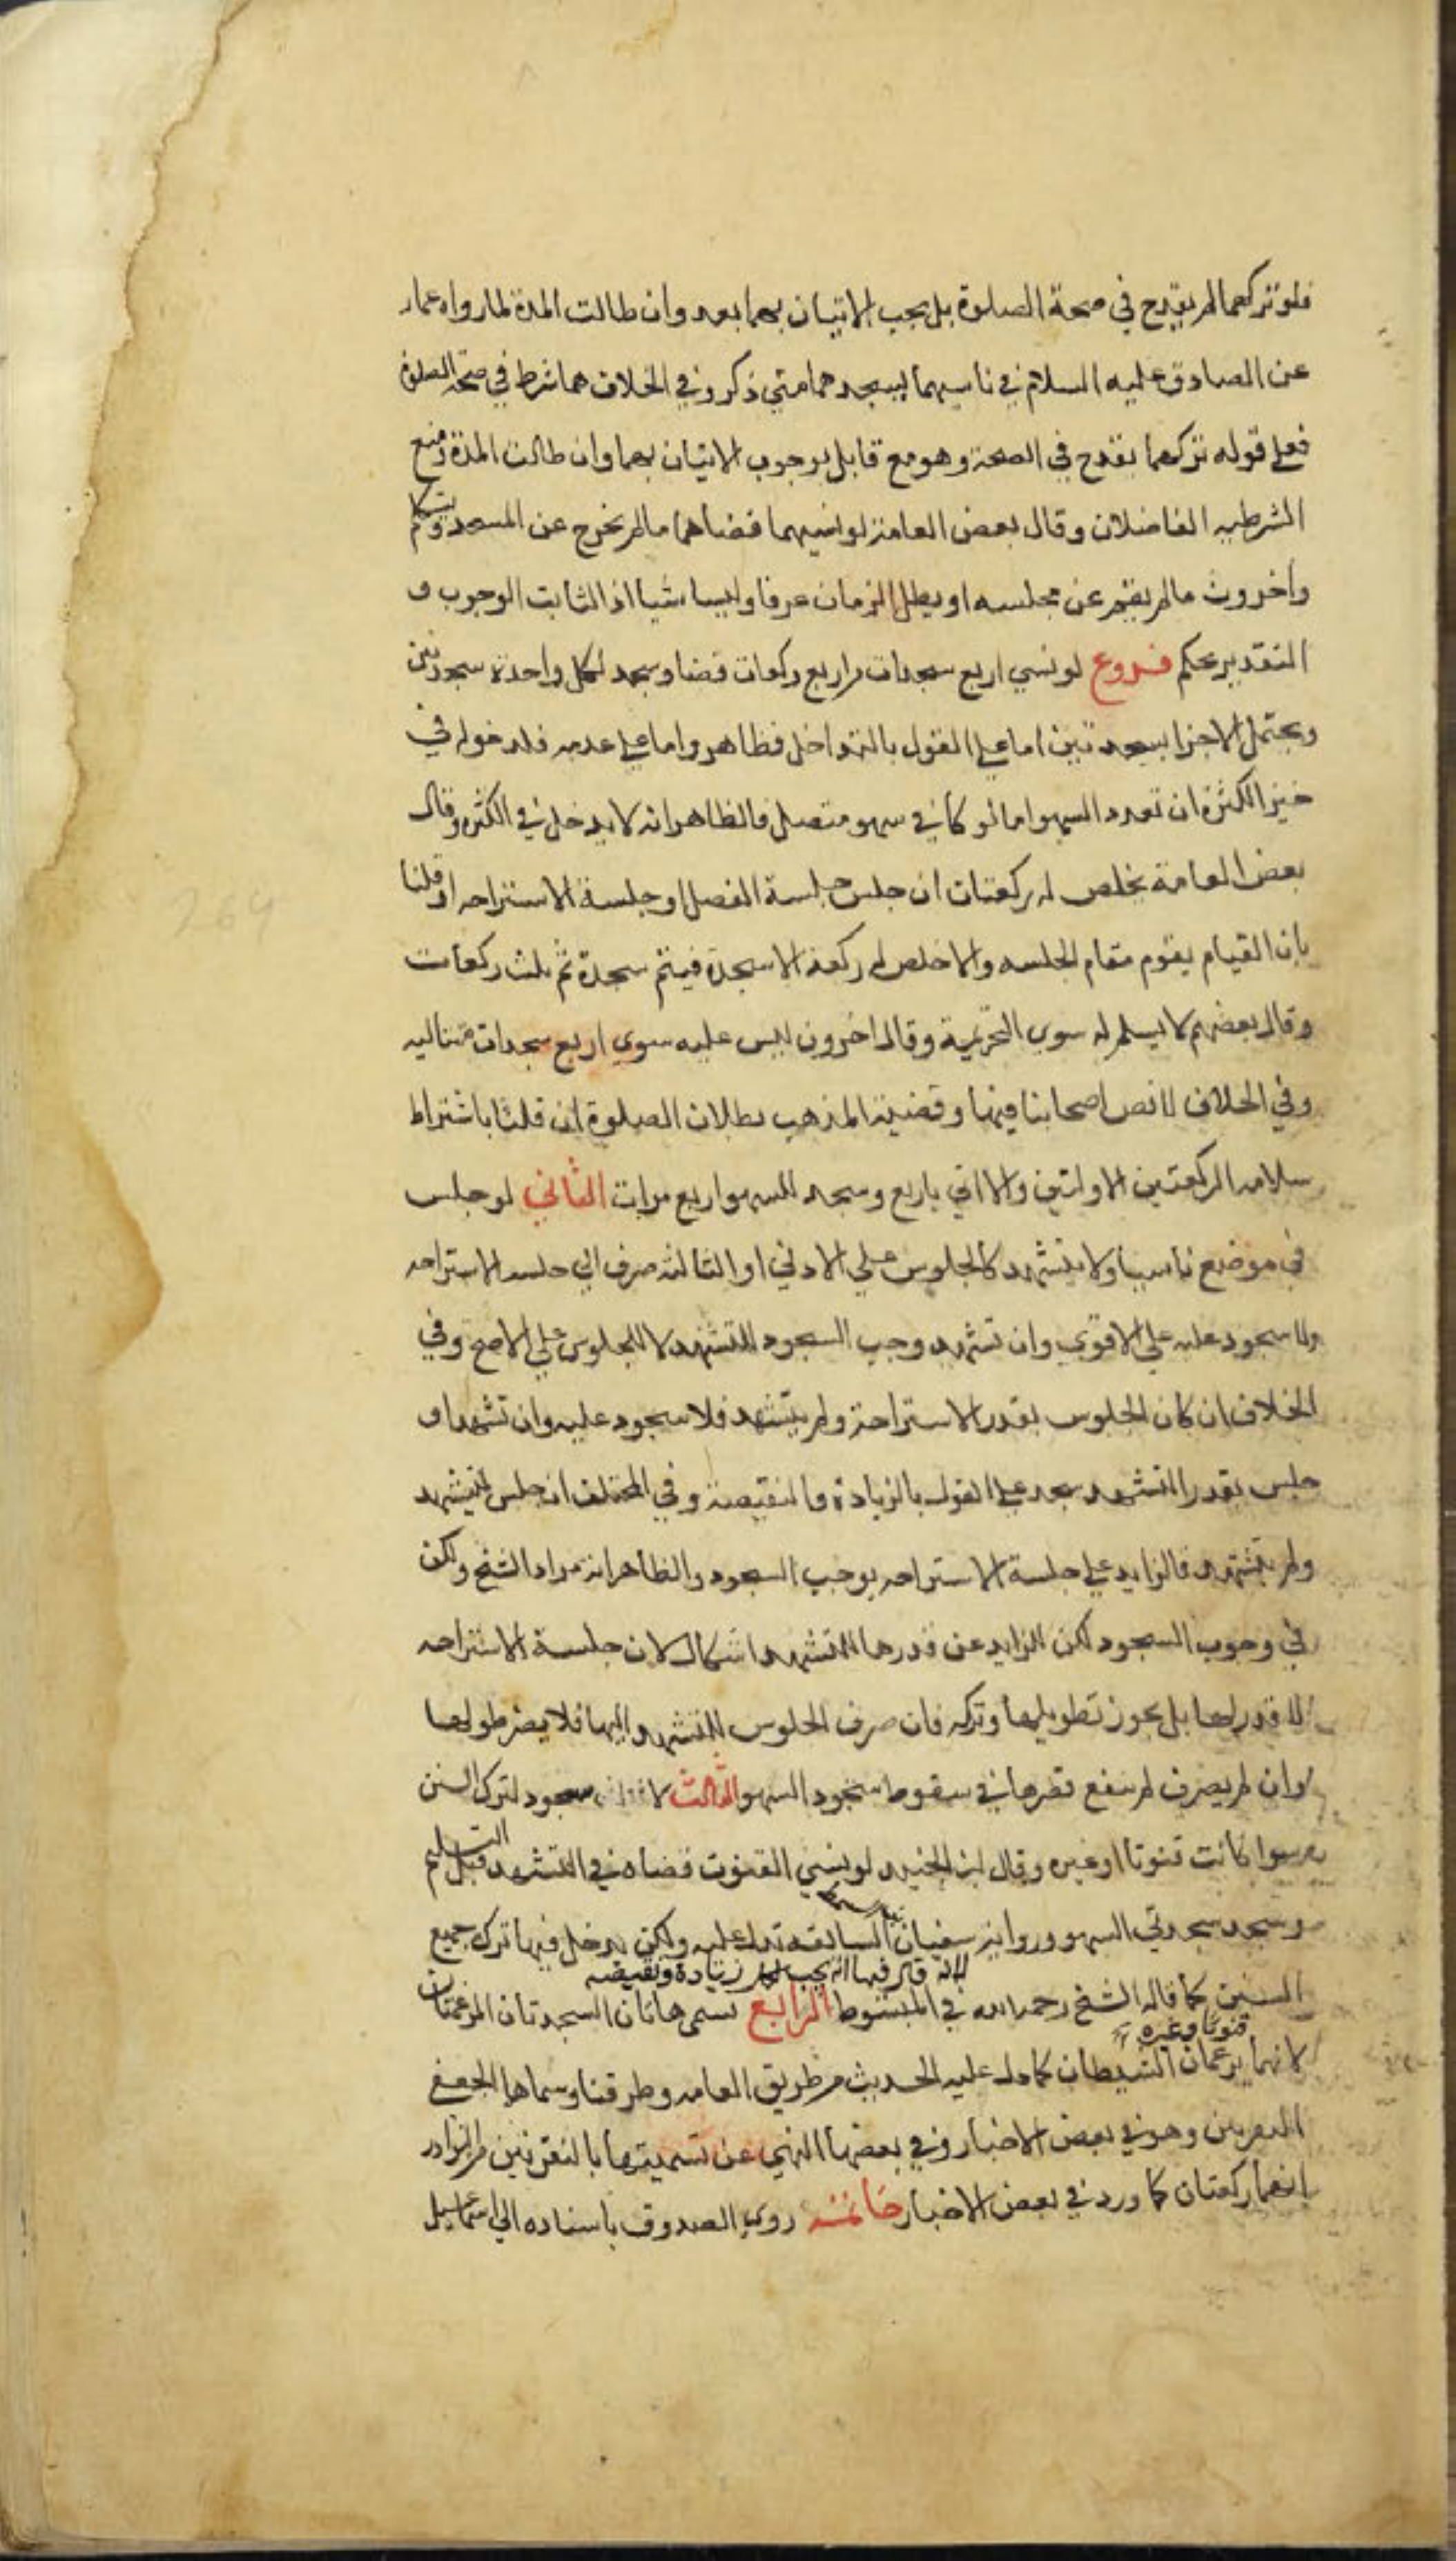 فلو تركهما لم يقدح في صحة الصلوة بل يجب الاتيان بهما بعد وان طالت المدة لما رواه عمار
عن الصادق عليه السلام في ناسيهما يسجدهما متى ذكر وفي الخلاف هما شرط في صحة الصلوة
فعلى قوله تركهما يقدح في الصحة وهو مع قايل بوجوب الاتيان بهما وان طالت المدة ومنع
الشرطيه الفاضلان وقال بعض العامة لو نسيهما قضاهما ما لم يخرج عن المسجد ويتكلم
واخرون ما لم يقم عن مجلسه او يطل الزمان عرفا وليسا شيا اذ الثابت الوجوب و
التقدير تحكم فروع لو نسي اربع سجدات من اربع ركعات قضا وسجد لكل واحدة سجدتين
ويحتمل الاجزا بسجدتين اما على القول بالتداخل فظاهر واما على عدمه فلدخوله في
حيز الكثرة ان تعدد السهو اما لو كان في سهو متصل فالظاهر انه لا يدخل في الكثرة وقال
بعض العامة يخلص له ركعتان ان جلس جلسة الفصل او جلسة الاستراحه او قلنا
بان القيام يقوم مقام الجلسه والا خلص له ركعة الا سجدة فيتم سجدة ثم ثلث ركعات
وقال بعضهم لا يسلم له سوى التحريمة وقال اخرون ليس عليه سوى اربع سجدات متتاليه
وفي الخلاف لا نص لاصحابنا فيها وقضية المذهب بطلان الصلوة ان قلنا باشتراط
سلامه الركعتين الاولتين والا اتي باربع وسجد للسهو اربع مرات الثاني لو جلس
في موضع ناسيا ولا يتشهد كالجلوس على الاولى او الثالثه صرف الى جلسه الاستراحه
ولا سجود عليه على الاقوى وان تشهد وجب السجود للتشهد لا للجلوس على الاصح وفي
الخلاف ان كان الجلوس بقدر الاستراحة ولم يتشهد فلا سجود عليه وان تشهد او
جلس بقدر التشهد سجد على القول بالزيادة والنقيصة وفي المختلف ان جلس ليتشهد
ولم يتشهد فالزايد على جلسة الاستراحه يوجب السجود والظاهر انه مراد الشيخ ولكن
في وجوب السجود لكن الزايد عن قدرها للتشهد اشكال لان جلسة الاستراحه
لا قدر لها بل يجوز تطويلها وتركه فان صرف الجلوس للتشهد اليها فلا يضر طولها
وان لم يصرف لم ينفع قصرها في سقوط سجود السهو الثالث لا سجود لترك السنن
سوا كانت قنوتا او غيره وقال ابن الجنيد لو نسي القنوت قضاه في التشهد قبل التسليم
وسجد سجدتي السهو ورواية سفيان السابقه تدل عليه ولكن يدخل فيها ترك جميع
لانه قال فيها انه يجب لكل زيادة ونقيصه
السنن كما قاله الشيخ رحمه الله في المبسوط الرابع تسمى هاتان السجدتان المرغمتان
قنوتا وغيره
لانهما يرغمان الشيطان كما دل عليه الحديث من طريق العامه وطرقنا وسماها الجعفي
النقرتين وهو في بعض الاخبار وفي بعضها النهي عن تسميتها بالنقرتين من النوادر
انهما ركعتان كما ورد في بعض الاخبار خاتمة روى الصدوق باسناده الى اسماعيل
264